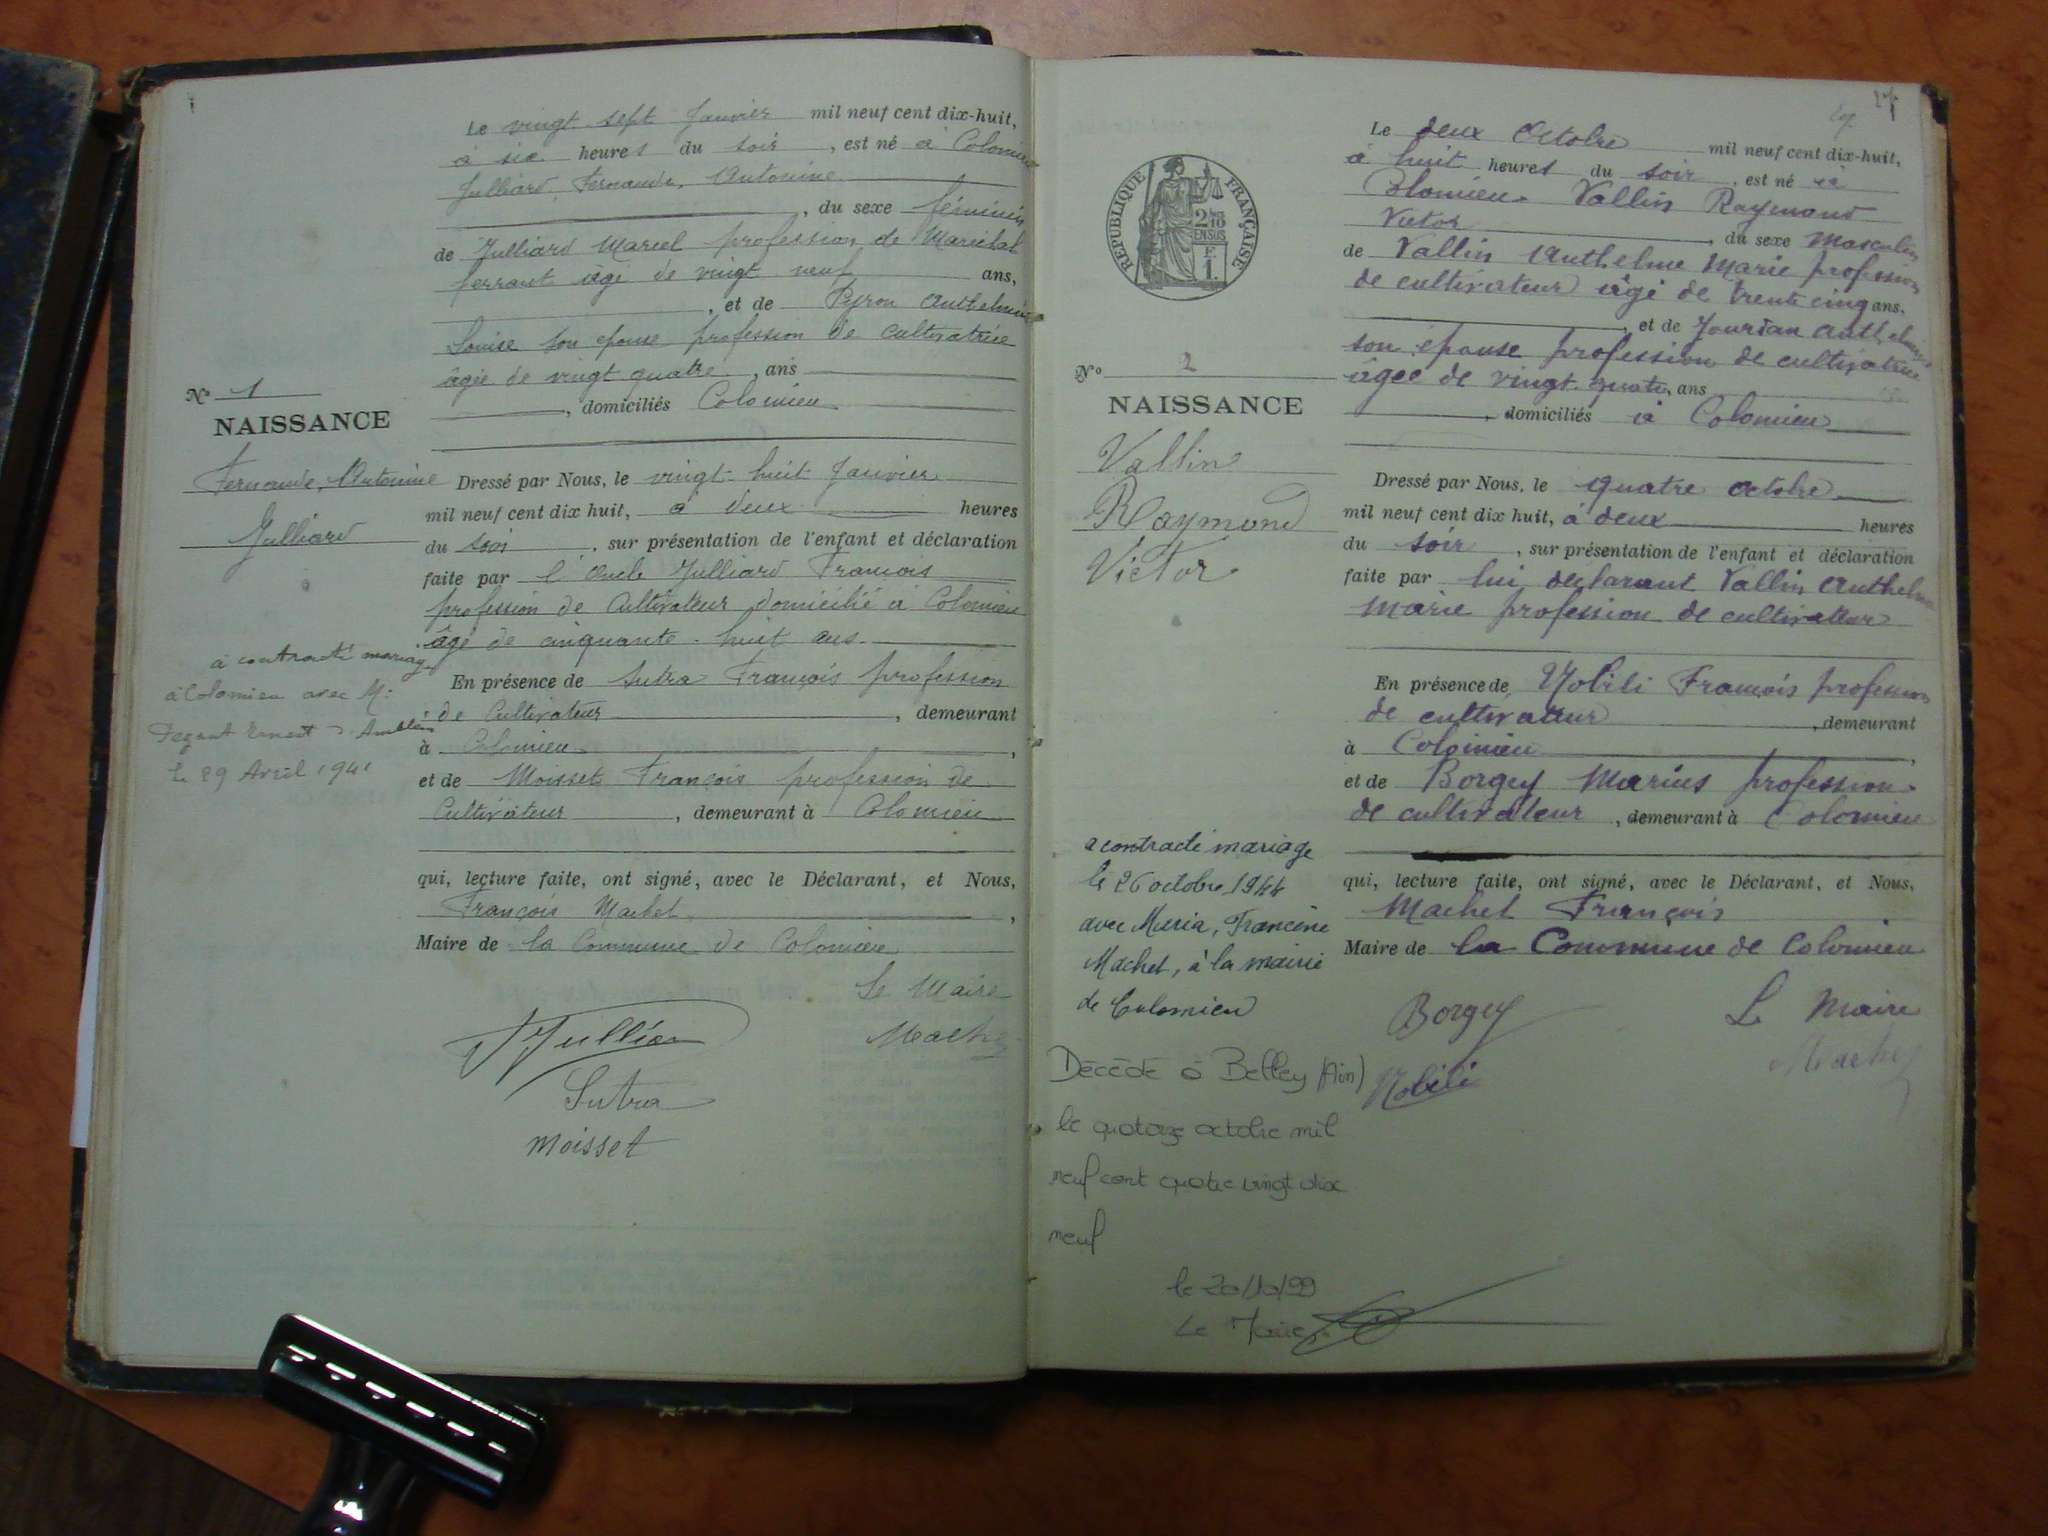 Le vingt sept Janvier mil neuf cent dix-huit,
à six heures du soir, est né à Colomieu
Julliard Fernande, Antonine
, du sexe féminin
de Julliard Marcel profession de Maréchal
ferrant agé de vingt neuf ans,
, et de Pyron Anthelmine
Louise son epouse profession de cultivatrice
âgée de vingt quatre, ans
, domiciliés Colomieu
N° 1
NAISSANCE
Fernande, Antonine
Julliard
Dressé par Nous, le vingt-huit Janvier
mil neuf cent dix huit, à deux heures
du soir, sur présentation de l'enfant et déclaration
faite par l'Oncle Julliard Francois
profession de Cultivateur domicilié à Colomieu
âgé de cinquante-huit ans
En présence de Sutra François profession
de Cultivateur, demeurant
à Colomieu,
et de Moisset François profession de
Cultivateur, demeurant à Colomieu
à contracté mariage
à Colomieu avec M:
Ernest
le 29 Avril 1941
qui, lecture faite, ont signé, avec le Déclarant, et Nous,
François Machet,
Maire de la Commune de Colomieu
Le Maire
Machet
Julliard
Sutra
Moisset
RÉPUBLIQUE FRANÇAISE
2/10
EN SUS
F.
1.
Le deux Octobre mil neuf cent dix-huit,
à huit heures du soir, est né à
Colomieu Vallin Raymond
Victor, du sexe Masculin
de Vallin Anthelme Marie profession
de cultivateur âgé de trente cinq ans.
, et de Jourdan Anthelmine
son épouse profession de cultivatrice
âgée de vingt quatre, ans
, domiciliés à Colomieu
N° 2
NAISSANCE
Vallin
Raymond
Victor
Dressé par Nous, le quatre octobre
mil neuf cent dix huit, à deux heures
du soir, sur présentation de l'enfant et déclaration
faite par lui déclarant Vallin Anthelme
Marie profession de cultivateur
En présence de Nobili François profession
de cultivateur, demeurant
à Colomieu,
et de Borgey Marius profession
de cultivateur, demeurant à Colomieu
a contracté mariage
le 26 octobre 1944
avec Maria, Francine
Machet, à la mairie
de Colomieu
qui, lecture faite, ont signé, avec le Déclarant, et Nous,
Machet François
Maire de la Commune de Colomieu
Borgey
Le Maire
Machet
Nobili
Décédé à Belley (Ain)
le quatorze octobre mil
neuf cent quatre vingt dix
neuf
le 20/10/99
Le Maire